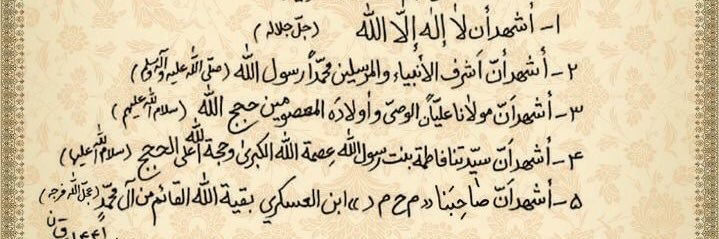 ۱- أشهد أن لا إله إلّا الله (جلّ جلاله)
۲- أشهد أنّ أشرف الأنبياء والمرسلين محمّداً رسول الله (صلّى الله عليه وآله وسلم)
۳- أشهد أنّ مولانا عليّاً الوصيّ وأولاده المعصومين حجج الله (سلام الله عليهم)
۴- أشهد أنّ سيّدتنا فاطمة بنت رسول الله عصمة الله الكبرىٰ وحجة الله أعلى الحجج (سلام الله عليها)
۵- أشهد أنّ صاحبَنا «م ح م د» ابن العسكري بقية الله القائم من آل محمّدٍ (عجّل الله فرجه)